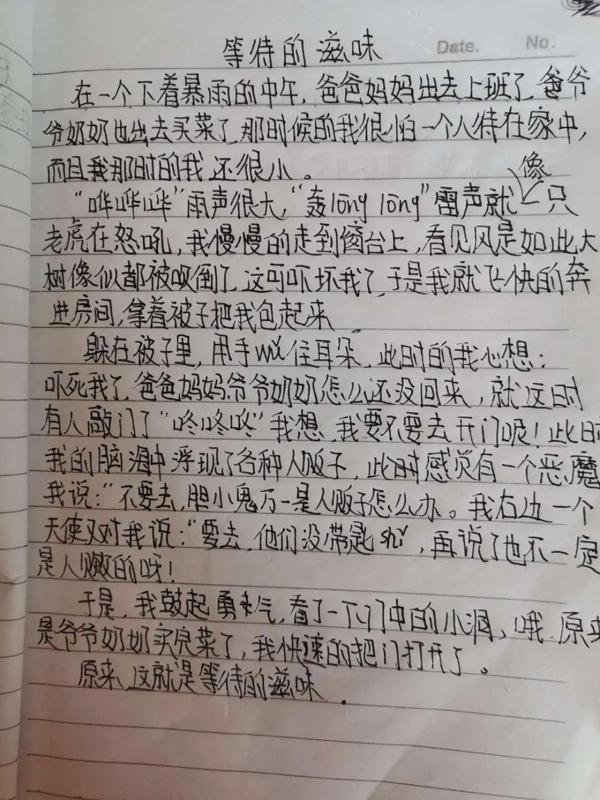 等待的滋味
Date. No.
在一个下着暴雨的中午,爸爸妈妈出去上班了,爸爷
爷奶奶也出去买菜了,那时候的我很怕一个人待在家中,
而且我那时的我还很小。
像
“哗哗哗”雨声很大,“轰lōng lōng”雷声就一只
老虎在怒吼,我慢慢的走到窗台上,看见风是如此大
树像似都被吸倒了,这可吓坏我了,于是我就飞快的奔
进房间,拿着被子把我包起来
躲在被子里,用手wǔ住耳朵,此时的我心想:
吓死我了,爸爸妈妈爷爷奶奶怎么还没回来,就这时
有人敲门了“咚咚咚”我想,我要不要去开门呢!此时
我的脑海中浮现了各种人贩子,此时感觉有一个恶魔
我说:“不要去,胆小鬼万一是人贩子怎么办。我右边一个
天使又对我说:“要去,他们没带匙,再说了也不一定
是人贩的呀!
于是,我鼓起勇气,看了一下门中的小洞,哦,原来
是爷爷奶奶买完菜了,我快速的把门打开了。
原来,这就是等待的滋味.